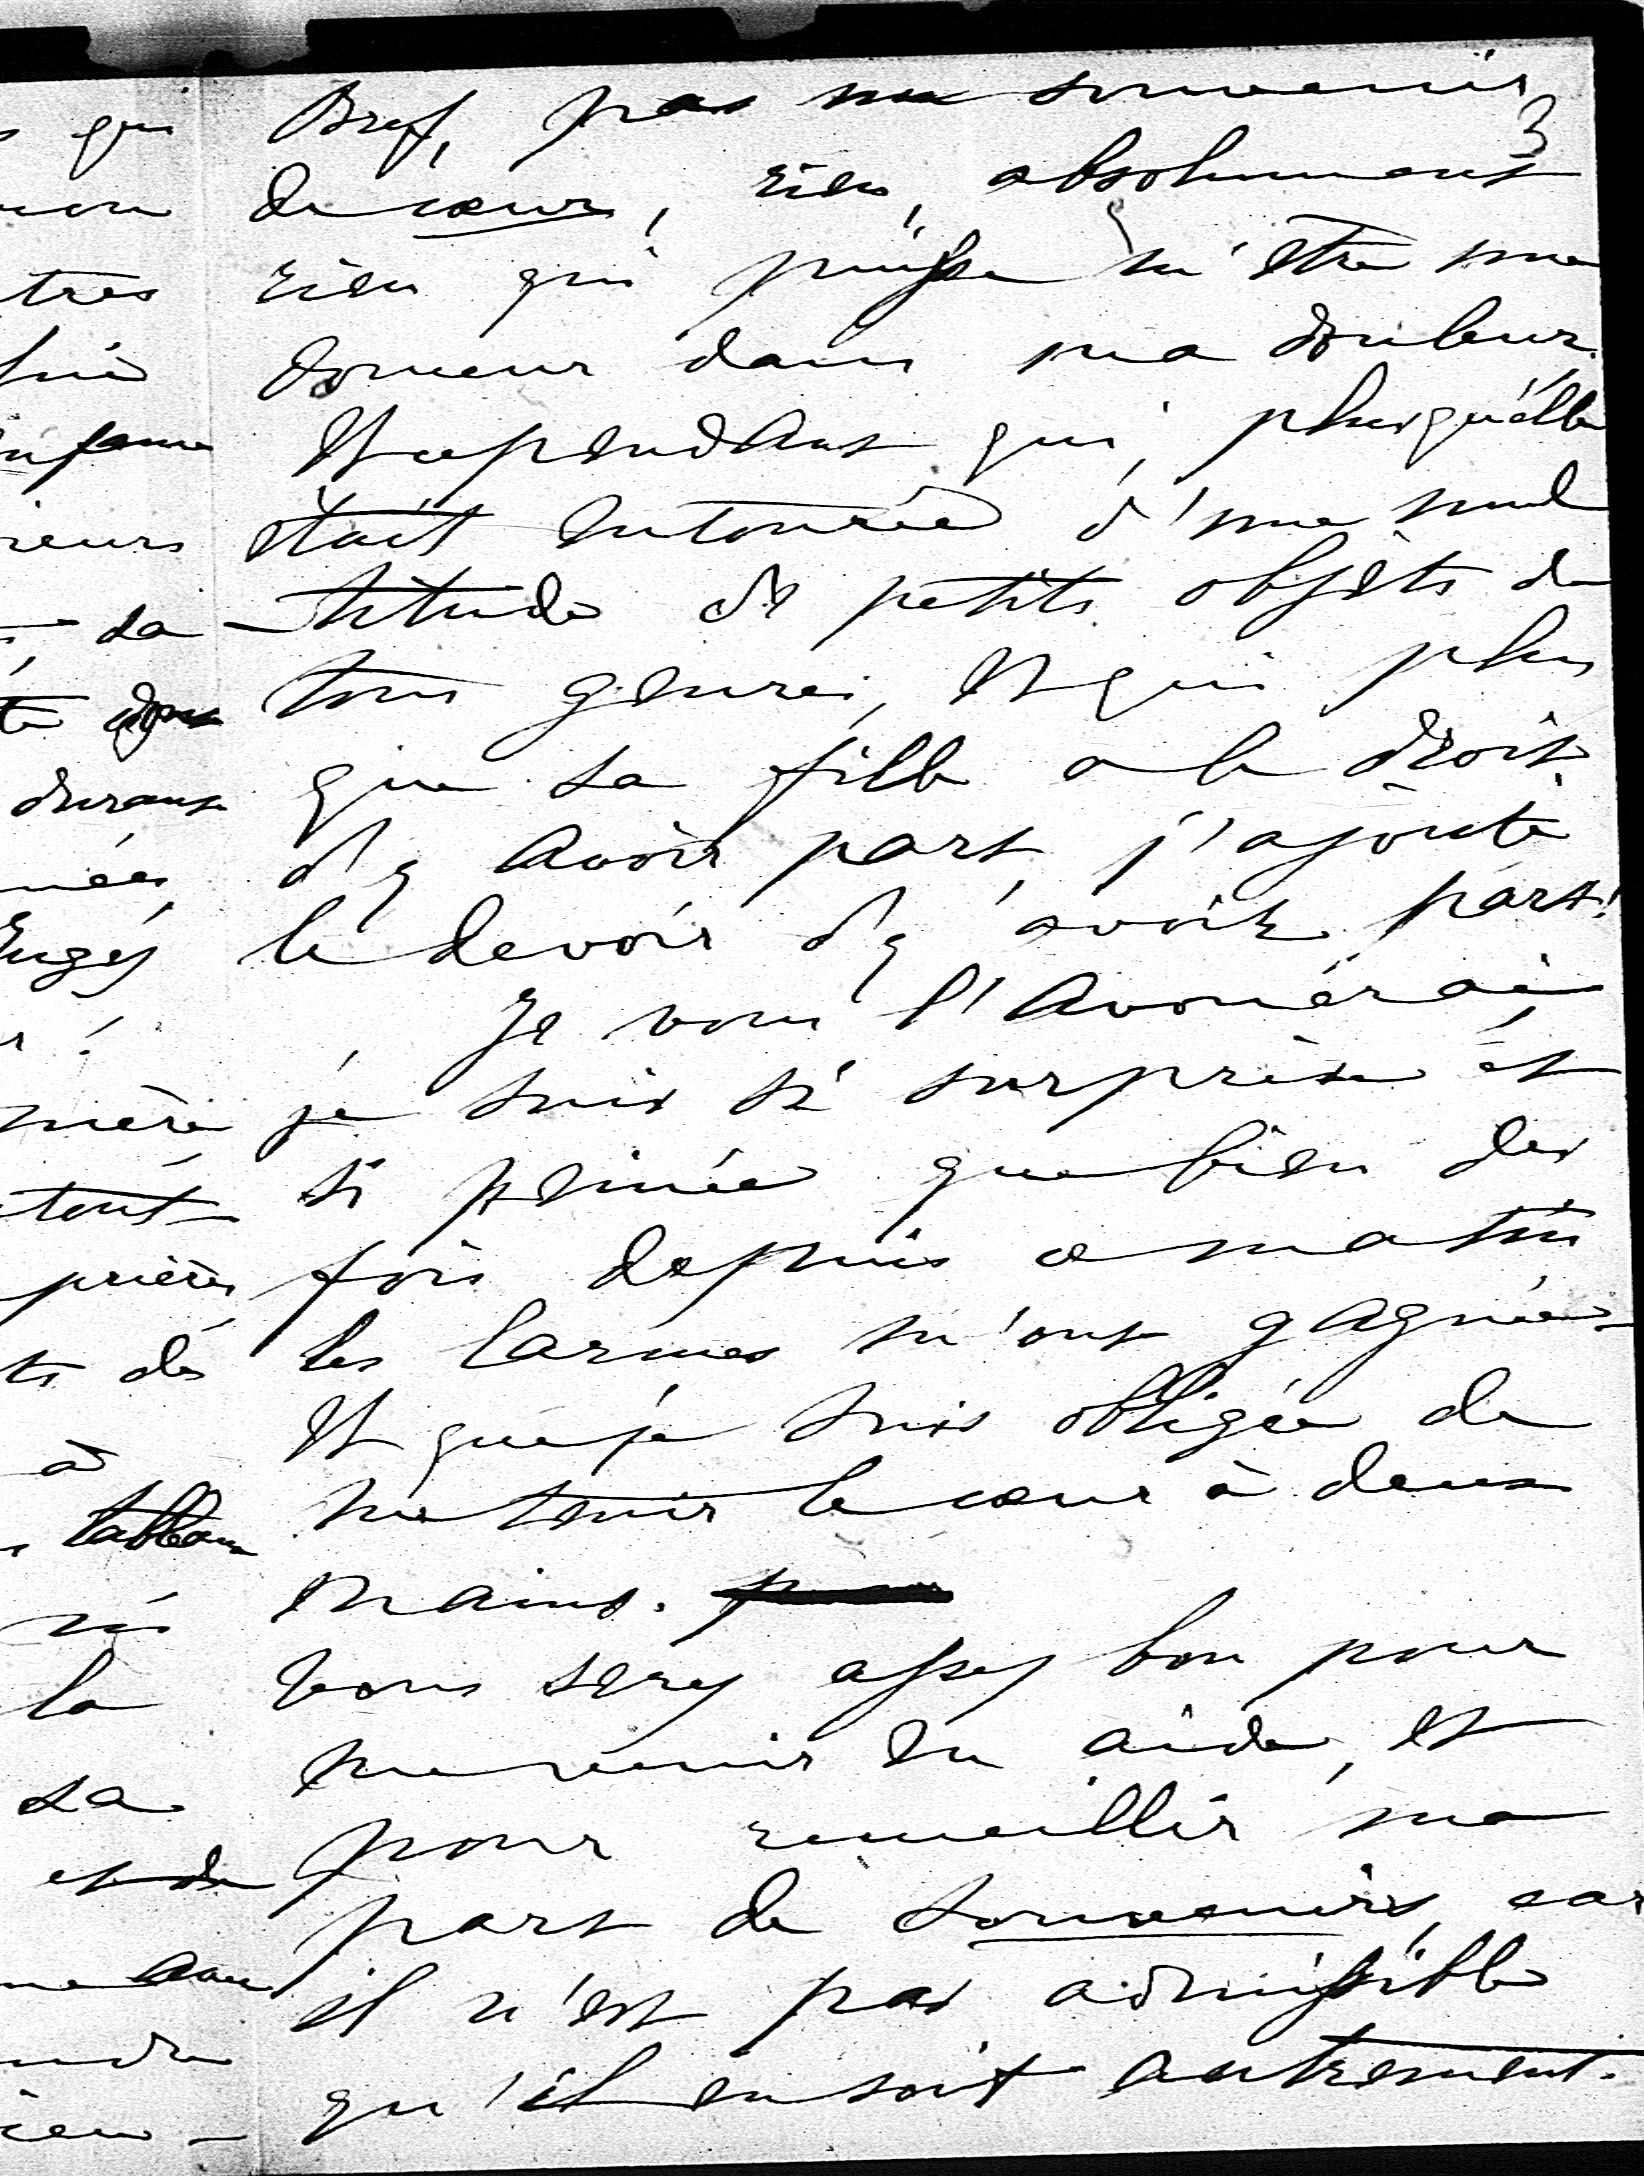 3
Bref, pas un souvenir
de cœur, rien, absolument
rien qui puisse m'être une
douceur dans ma douleur.
Et cependant qui, plus qu'elle
était entourée d'une mul
-titude de petits objets de
tous genres, et qui plus
que sa fille a le droit
d'y avoir part, j'ajoute
le devoir d'y avoir part!
Je vous l'avouerai,
je suis si surprise et
si peinée que bien des
fois depuis ce matin
les larmes m'ont gagnée
et que je suis obligée de
me tenir le cœur à deux
mains.
Vous serez assez bon pour
me venir en aide, et
pour recueillir ma
part de souvenirs, car
il n'est pas admissible
qu'il en soit autrement.
qui
tres
sa
durant
mère
tout
prières
dès
à
tableau
la
sa
et de